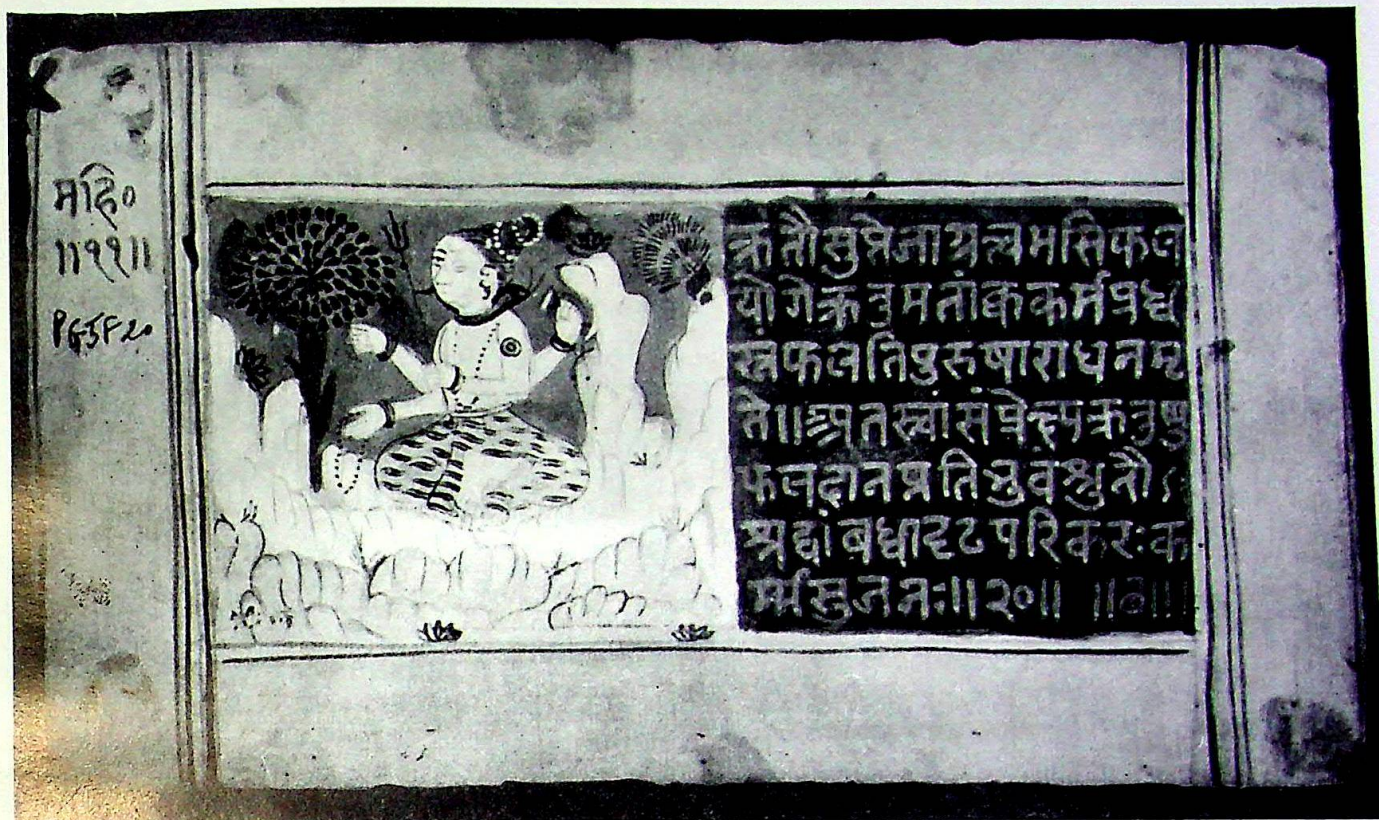 महि०
॥११॥
PG5F20
क्रतौसुप्तेजाग्रत्त्वमसिफल
योगेक्रतुमतांक्वकर्मप्रध्व
स्तंफलतिपुरुषाराधनमृ
ते॥अतस्त्वांसंप्रेक्ष्यक्रतुषु
फलदानप्रतिभुवंश्रुतौ
श्रद्धांबध्वादृढपरिकरःक
र्म्मसुजनः॥२०॥ ॥७॥